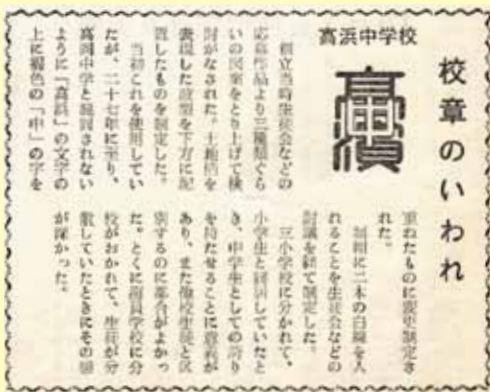 校章のいわれ
高浜中学校
創立当時生徒会などの
応募作品より三種類ぐら
いの図案をとり上げて検
討がなされた。土地柄を
表現した波型を下方に配
置したものを制定した。
当初これを使用してい
たが、二十七年に至り、
高岡中学と混同されない
ように「高浜」の文字の
上に褐色の「中」の字を
重ねたものに変更制定さ
れた。
制帽に二本の白線を入
れることを生徒会などの
討議を経て制定した。
三小学校に分かれて、
小学生と同居していたと
き、中学生としての誇り
を持たせることに意義が
あり、また他校生徒と区
別するのに都合がよかっ
た。とくに海員学校に分
校がおかれて、生徒が分
散していたときにその感
が深かった。